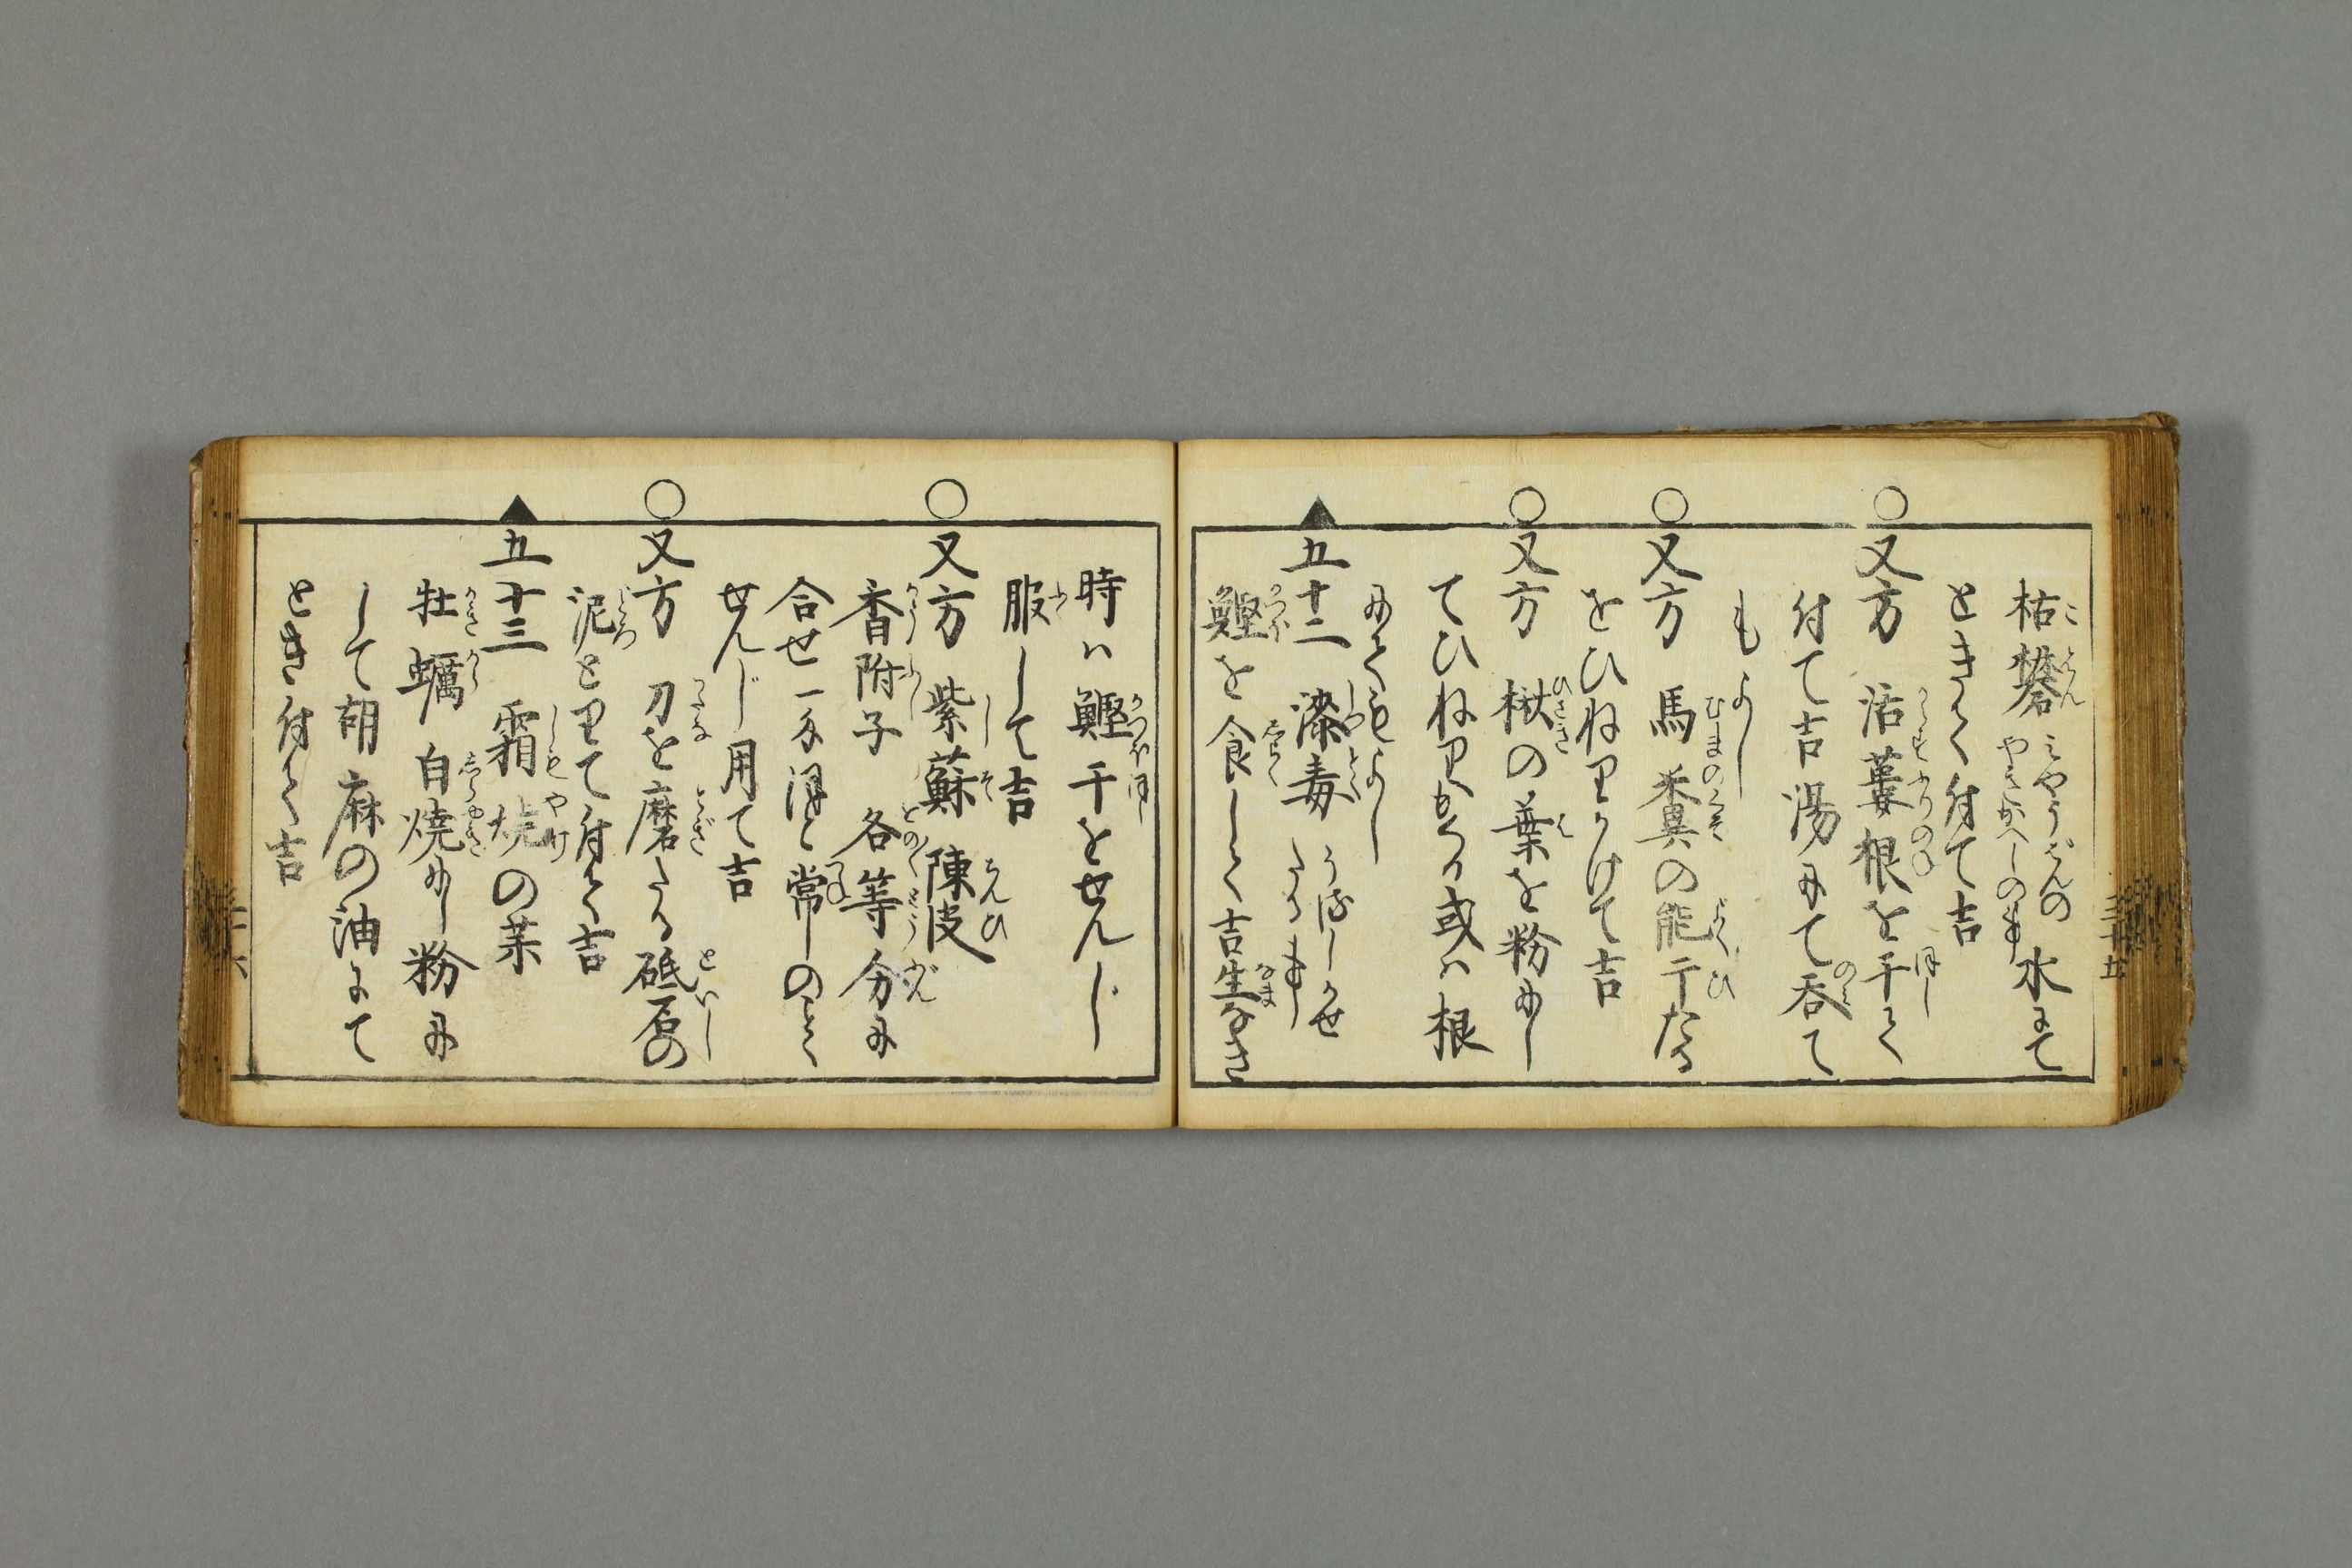 枯礬 みやうばんの やきかへしの事 水にて
ときて付て吉
○又方 活蔞根を干て
付て吉湯にて呑て
もよし
○又方 馬糞の能干たる
をひねりかけて吉
○又方 楸の葉を粉にし
てひねりかくる或ハ根
にてもよし
▲五十二 漆毒 うるしかせ たる事
鰹を食して吉生なき
三十五
時ハ鰹干をせんじ
服して吉
○又方 紫蘇 陳皮
香附子 各等分に
合せ 常のごとく
せんじ用て吉
○又方 刀を磨たる砥石の
泥をとりて付て吉
▲五十三 霜焼の薬
牡蠣 白焼にし粉に
して胡麻の油にて
とき付て吉
三十六